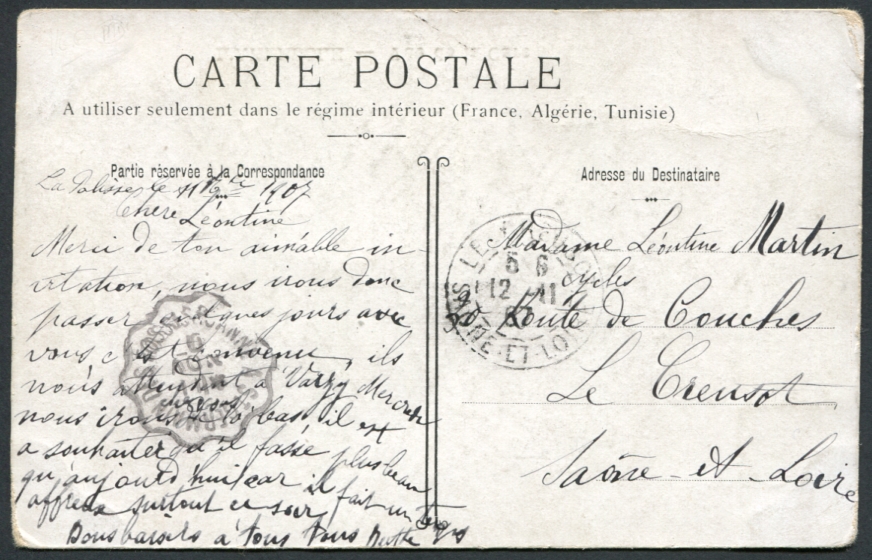 CARTE POSTALE
A utiliser seulement dans le régime intérieur (France, Algérie, Tunisie)
Partie réservée à la Correspondance
La Palisse le 11 1907
Chère Léontine
Merci de ton aimable in-
vitation, nous irons donc
passer quelques jours avec
vous c'est convenu, ils
nous attendent à Varzy Mercredi
nous irons là bas, il est
a souhaiter qu'il fasse plus beau
qu'aujourd'hui car il fait un temps
affreux surtout ce soir
Bons baisers à tous tous
Adresse du Destinataire
Madame Léontine Martin
cycles
Route de Couches
Le Creusot
Saône-et-Loire
LE CREUSOT
5 6
12 - 11
07
SAONE-ET-LOIRE